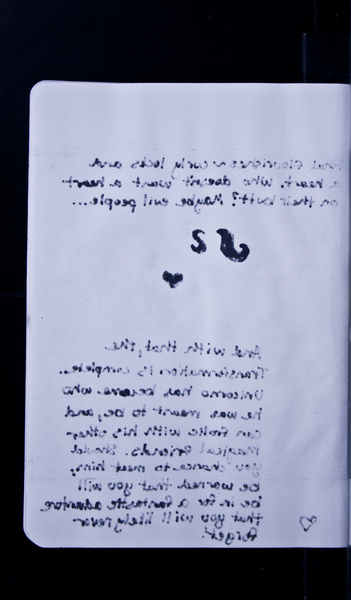 Final flourishes: curly locks and
a heart. Who doesn't want a heart
on their butt? Maybe evil people...
And with that, the
Transformation is complete.
Unicorno has become who
he was meant to be, and
can frolic with his other
Magical friends. Should
you chance to meet him,
be warned that you will
be in for a fantastic adventure
that you will likely never
forget!